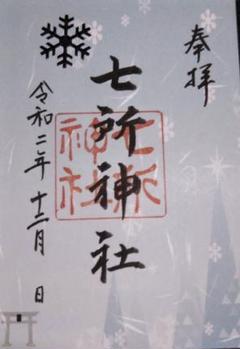 奉拝
七所神社
七所神社
令和二年十二月 日